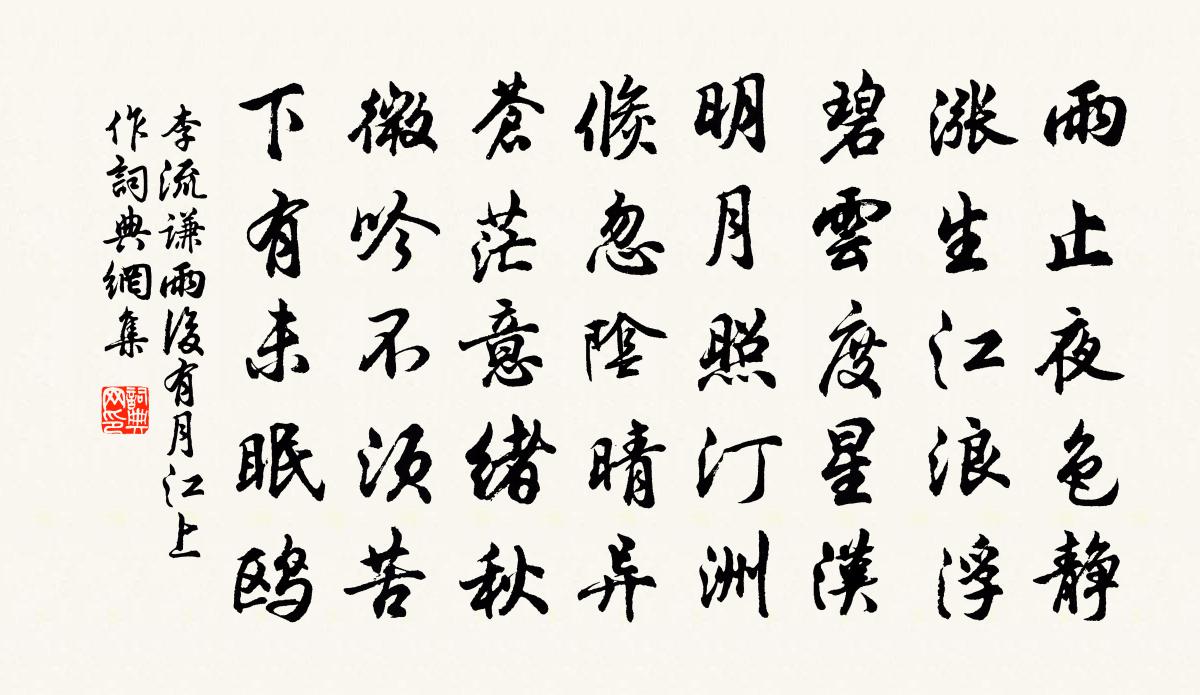 雨止夜色静
漲生江浪浮
碧雲度星漢
明月照汀洲
倏忽陰晴异
蒼茫意緒秋
微吟不須苦
下有未眠鸥
李流謙雨後有月江上
作詞典網集
詞典
网印